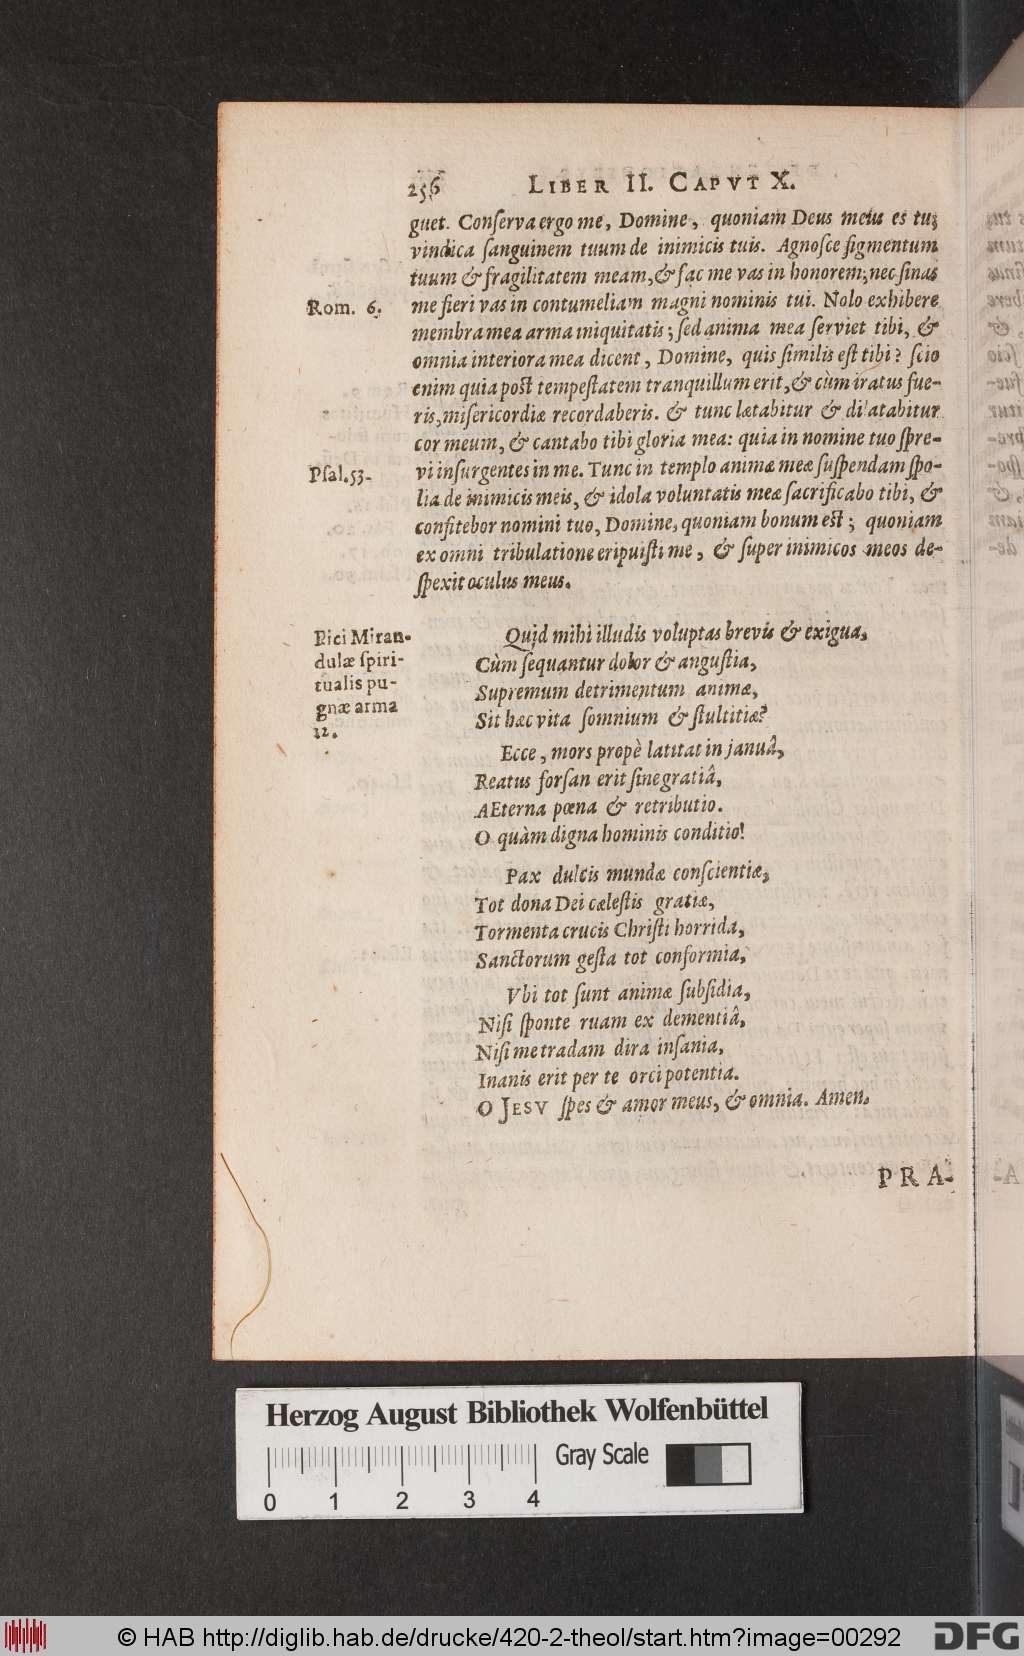 256 LIBER II. CAPVT X.
guet. Conſerva ergo me, Domine, quoniam Deus meus es tu;
vindica ſanguinem tuum de inimicis tuis. Agnoſce figmentum
tuum & fragilitatem meam, & fac me vas in honorem; nec ſinas
Rom. 6.
me fieri vas in contumeliam magni nominis tui. Nolo exhibere
membra mea arma iniquitatis; ſed anima mea ſerviet tibi, &
omnia interiora mea dicent, Domine, quis ſimilis eſt tibi? ſcio
enim quia poſt tempeſtatem tranquillum erit, & cùm iratus fue-
ris, miſericordiæ recordaberis. & tunc lætabitur & dilatabitur
cor meum, & cantabo tibi gloria mea: quia in nomine tuo ſpre-
Pſal. 53.
vi inſurgentes in me. Tunc in templo animæ meæ ſuſpendam ſpo-
lia de inimicis meis, & idola voluntatis meæ ſacrificabo tibi, &
confitebor nomini tuo, Domine, quoniam bonum eſt; quoniam
ex omni tribulatione eripuiſti me, & ſuper inimicos meos de-
ſpexit oculus meus.
Pici Miran-
dulæ ſpiri-
tualis pu-
gnæ arma
12.
Quid mihi illudis voluptas brevis & exigua,
Cùm ſequantur dolor & anguſtia,
Supremum detrimentum animæ,
Sit hæc vita ſomnium & ſtultitiæ?
Ecce, mors propè latitat in januâ,
Reatus forſan erit ſine gratiâ,
AEterna pœna & retributio.
O quàm digna hominis conditio!
Pax dulcis mundæ conſcientiæ,
Tot dona Dei cæleſtis gratiæ,
Tormenta crucis Chriſti horrida,
Sanctorum geſta tot conformia,
Vbi tot ſunt animæ ſubſidia,
Niſi ſponte ruam ex dementiâ,
Niſi me tradam dira inſania,
Inanis erit per te orci potentia.
O JESV ſpes & amor meus, & omnia. Amen.
PRA-
Herzog August Bibliothek Wolfenbüttel
Gray Scale
0 1 2 3 4
© HAB http://diglib.hab.de/drucke/420-2-theol/start.htm?image=00292
DFG